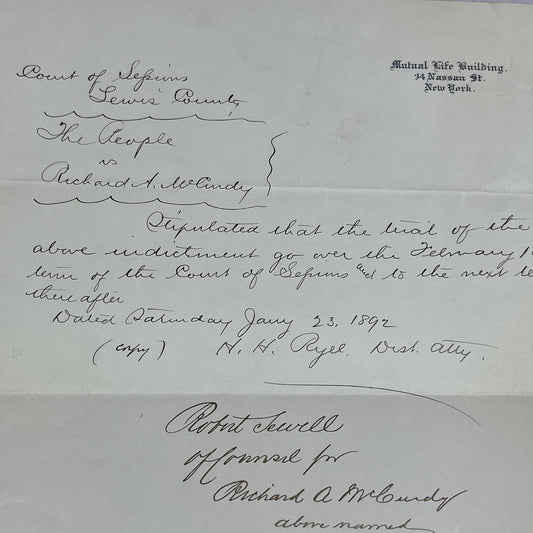 Mutual Life Building.
34 Nassau St.
New York.
Court of Sessions
Lewis County
The People
vs
Richard A. McCurdy
Stipulated that the trial of the
above indictment go over the February
term of the Court of Sessions and to the next
thereafter
Dated Saturday Jany 23, 1892
(copy) H. H. Ryel. Dist. Atty.
Robert Sewell
of Counsel for
Richard A McCurdy
above named